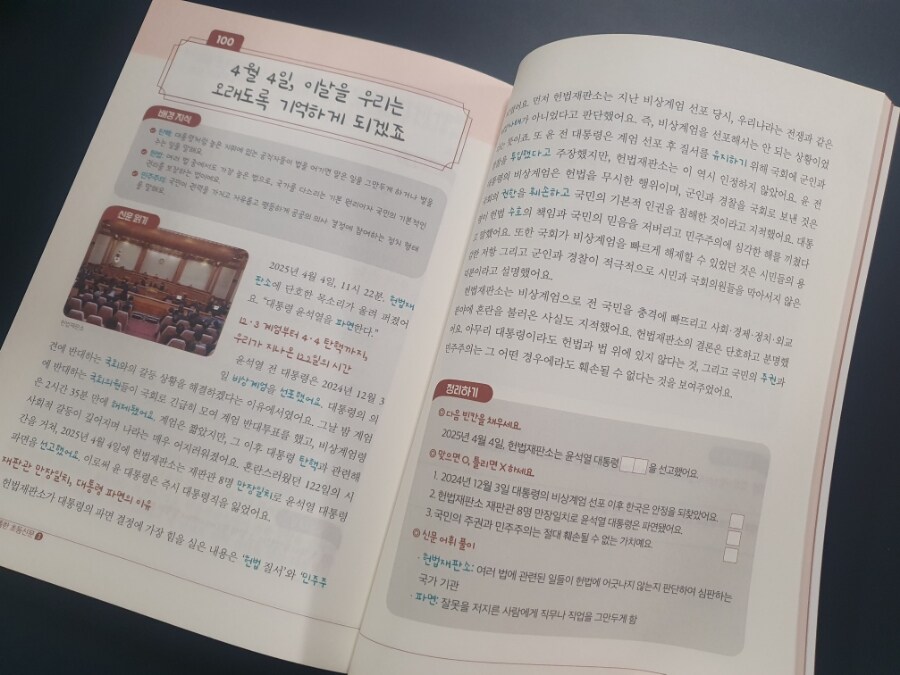 100
4월 4일, 이날을 우리는
오래도록 기억하게 되겠죠
배경 지식
탄핵: 대통령처럼 높은 지위에 있는 공직자들이 법을 어기면 맡은 일을 그만두게 하거나 벌을
주는 일을 말해요.
헌법: 여러 법 중에서도 가장 높은 법으로, 국가를 다스리는 기본 원리이자 국민의 기본적인
권리를 보장하는 법이에요.
민주주의: 국민이 권력을 가지고 자유롭고 평등하게 공공의 의사 결정에 참여하는 정치 형태
를 말해요.
신문 읽기
헌법재판소
2025년 4월 4일, 11시 22분, 헌법재
판소에 단호한 목소리가 울려 퍼졌어
요. "대통령 윤석열을 파면한다."
12·3 계엄부터 4·4 탄핵까지,
우리가 지나온 122일의 시간
윤석열 전 대통령은 2024년 12월 3
일 비상계엄을 선포했어요. 대통령의 의
견에 반대하는 국회와의 갈등 상황을 해결하겠다는 이유에서였어요. 그날 밤 계엄
에 반대하는 국회의원들이 국회로 긴급히 모여 계엄 반대투표를 했고, 비상계엄령
은 2시간 35분 만에 해제됐어요. 계엄은 짧았지만, 그 이후 대통령 탄핵과 관련해
사회적 갈등이 깊어지며 나라는 매우 어지러워졌어요. 혼란스러웠던 122일의 시
간을 거쳐, 2025년 4월 4일에 헌법재판소는 재판관 8명 만장일치로 윤석열 대통령
파면을 선고했어요. 이로써 윤 대통령은 즉시 대통령직을 잃었어요.
재판관 만장일치, 대통령 파면의 이유
헌법재판소가 대통령의 파면 결정에 가장 힘을 실은 내용은 '헌법 질서'와 '민주주
초등신문 2
먼저 헌법재판소는 지난 비상계엄 선포 당시, 우리나라는 전쟁과 같은
아니었다고 판단했어요. 즉, 비상계엄을 선포해서는 안 되는 상황이었
뜻이죠. 또 윤 전 대통령은 계엄 선포 후 질서를 유지하기 위해 국회에 군인과
투입했다고 주장했지만, 헌법재판소는 이 역시 인정하지 않았어요. 윤 전
비상계엄은 헌법을 무시한 행위이며, 군인과 경찰을 국회로 보낸 것은
국회의 권한을 훼손하고 국민의 기본적 인권을 침해한 것이라고 지적했어요. 대통
령이 헌법 수호의 책임과 국민의 믿음을 저버리고 민주주의에 심각한 해를 끼쳤다
고 말했어요. 또한 국회가 비상계엄을 빠르게 해제할 수 있었던 것은 시민들의 용
감한 저항 그리고 군인과 경찰이 적극적으로 시민과 국회의원들을 막아서지 않은
덕분이라고 설명했어요.
헌법재판소는 비상계엄으로 전 국민을 충격에 빠뜨리고 사회·경제·정치·외교
분야에 혼란을 불러온 사실도 지적했어요. 헌법재판소의 결론은 단호하고 분명했
어요. 아무리 대통령이라도 헌법과 법 위에 있지 않다는 것, 그리고 국민의 주권과
민주주의는 그 어떤 경우에라도 훼손될 수 없다는 것을 보여주었어요.
정리하기
다음 빈칸을 채우세요.
2025년 4월 4일, 헌법재판소는 윤석열 대통령 을 선고했어요.
맞으면 O, 틀리면 X 하세요.
1. 2024년 12월 3일 대통령의 비상계엄 선포 이후 한국은 안정을 되찾았어요.
2. 헌법재판소 재판관 8명 만장일치로 윤석열 대통령은 파면됐어요.
3. 국민의 주권과 민주주의는 절대 훼손될 수 없는 가치예요.
신문 어휘 풀이
· 헌법재판소: 여러 법에 관련된 일들이 헌법에 어긋나지 않는지 판단하여 심판하는
국가 기관
· 파면: 잘못을 저지른 사람에게 직무나 직업을 그만두게 함